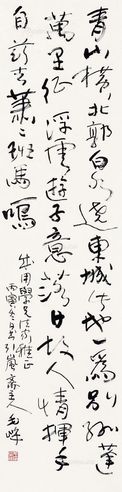 青山橫北郭白水遶東城此地一為別孤蓬
萬里征浮雲遊子意落日故人情揮手
自茲去蕭〻班馬鳴
學兄法家雅正
丙寅冬月